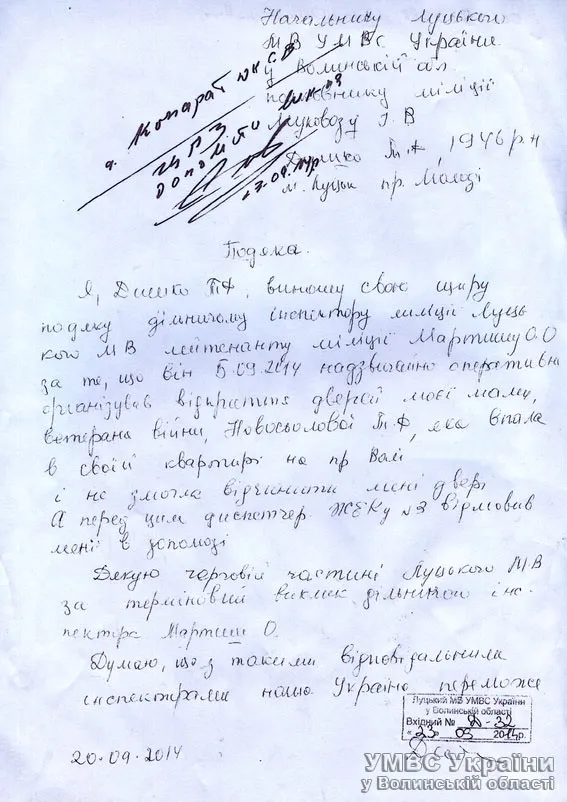 Начальнику Луцького
МВ УМВС України
у Волинській обл
полковнику міліції
Муковозу І. В
Дишко Т.Ф, 1946 р.н
м. Луцьк пр. Молоді
23.09.14р
Подяка.
Я, Дишко Т.Ф, виношу свою щиру
подяку дільничому інспектору міліції Луць
кого МВ лейтенанту міліції Мартишу О.О
за те, що він 5.09.2014 надзвичайно оперативно
організував відкриття дверей моєї мами,
ветерана війни, Новосьолової Т.Ф, яка впала
в своїй квартирі на пр Волі
і не змогла відчинити мені двері
А перед цим диспетчер ЖЕКу №3 відмовив
мені в допомозі
Дякую черговій частині Луцького М.В
за терміновий виклик дільничого інс-
пектора Мартиш О.
Думаю, що з такими відповідальними
інспекторами наша Україна переможе
Луцький МВ УМВС України
у Волинській області
Вхідний № Д-32
"23" 09 2014р.
20.09.2014
УМВС України
у Волинській області